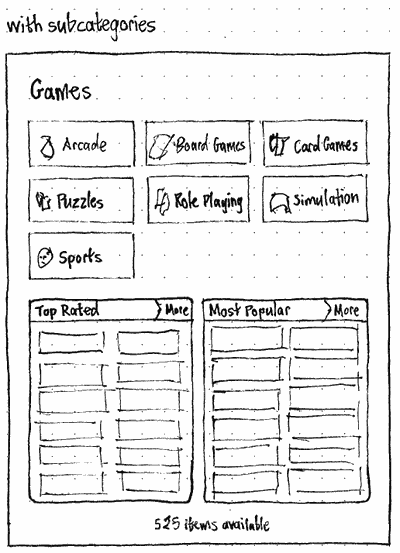 with subcategories
Games
Arcade
Board Games
Card Games
Puzzles
Role Playing
Simulation
Sports
Top Rated
More
Most Popular
More
525 items available